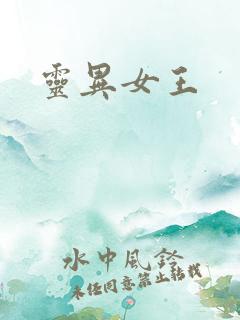 靈異女王
水中風鈴
未經同意禁止轉載